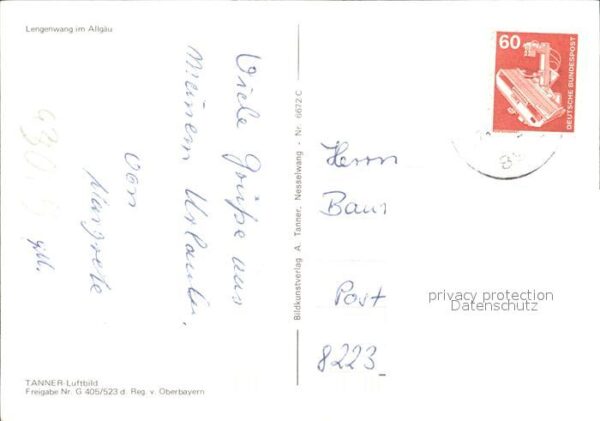 Lengenwang im Allgäu
Viele Grüße aus
meinem Urlaub.
von
Margrete
TANNER-Luftbild
Freigabe Nr. G 405/523 d. Reg. v. Oberbayern
Bildkunstverlag A. Tanner, Nesselwang - Nr. 6672 C
60
DEUTSCHE BUNDESPOST
Herrn
Baur
Post
8223
privacy protection
Datenschutz